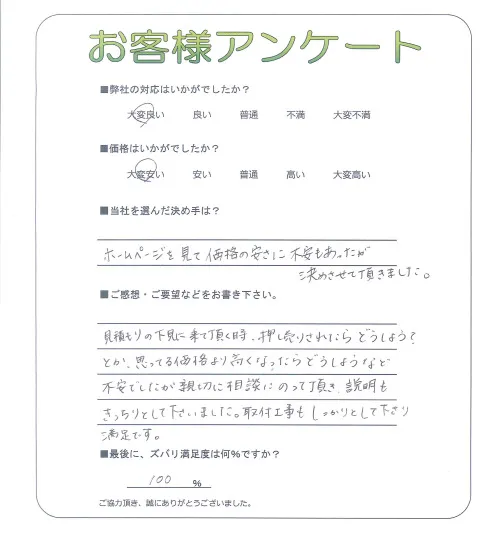 お客様アンケート
■弊社の対応はいかがでしたか？
大変良い 良い 普通 不満 大変不満
■価格はいかがでしたか？
大変安い 安い 普通 高い 大変高い
■当社を選んだ決め手は？
ホームページを見て価格の安さに不安もあったが
決めさせて頂きました。
■ご感想・ご要望などをお書き下さい。
見積もりの下見に来て頂く時、押し売りされたらどうしよう？
とか、思ってる価格より高くなったらどうしようなど
不安でしたが親切に相談にのって頂き、説明も
きっちりとして下さいました。取付工事もしっかりとして下さり
満足です。
■最後に、ズバリ満足度は何%ですか？
100 %
ご協力頂き、誠にありがとうございました。